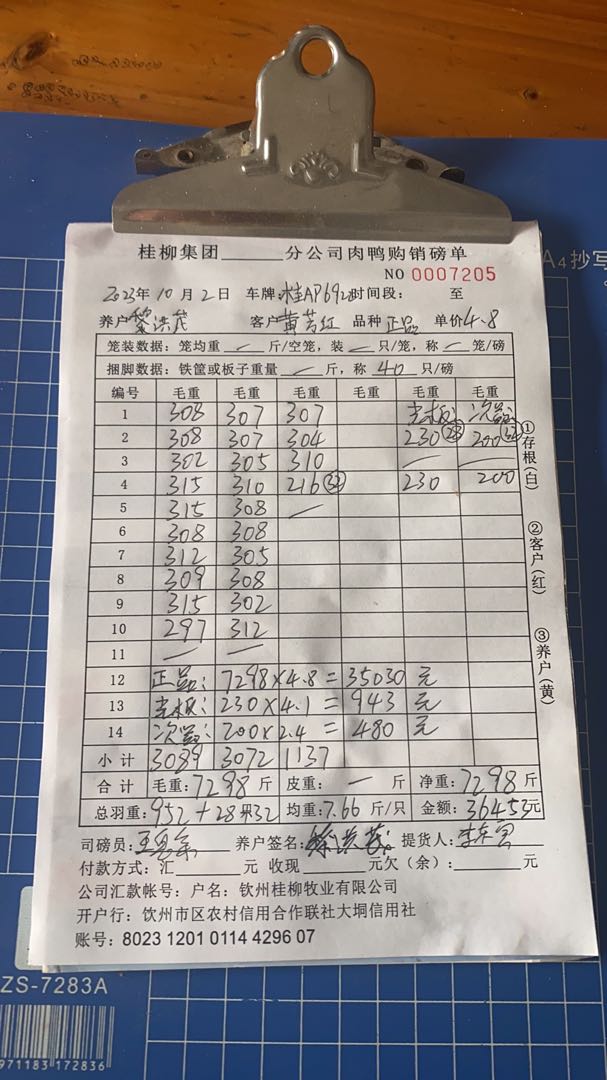 桂柳集团______分公司肉鸭购销磅单
NO 0007205
2023年10月2日 车牌:桂AP692 时间段: 至
养户 黎洪茂 客户 黄芳红 品种 正品 单价 4.8
笼装数据：笼均重 — 斤/空笼，装 — 只/笼，称 — 笼/磅
捆脚数据：铁筐或板子重量 — 斤，称 40 只/磅
编号 毛重 毛重 毛重 毛重 毛重 毛重
1 308 307 307 次品:
2 308 307 304 230(28) 200(32)
3 302 305 310 — —
4 315 310 216(32) 230 200
5 315 308 —
6 308 308
7 312 305
8 309 308
9 315 302
10 297 312
11 — —
12 正品: 7298×4.8=35030 元
13 230×4.1=943 元
14 次品: 200×2.4=480 元
小计 3089 3072 1137
合计 毛重: 7298 斤 皮重: — 斤 净重: 7298 斤
总羽重: 952+28 32 均重: 7.66 斤/只 金额: 36453元
司磅员: 养户签名: 提货人:
付款方式: 汇______元 收现______元欠（余）:______元
公司汇款帐号: 户名: 钦州桂柳牧业有限公司
开户行: 钦州市区农村信用合作联社大垌信用社
账号: 8023 1201 0114 4296 07
①存根(白)
②客户(红)
③养户(黄)
A4抄写
ZS-7283A
971183 172836